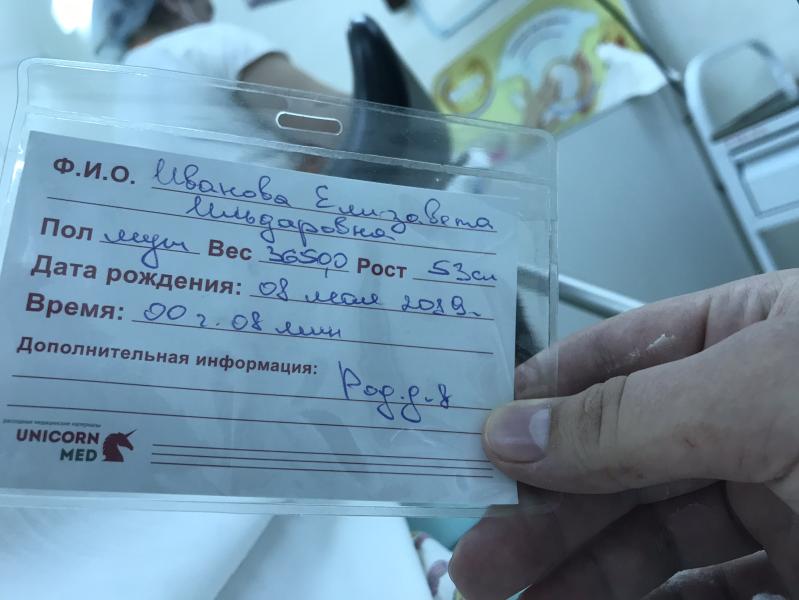 Ф.И.О. Иванова Елизавета
Ильдаровна
Пол муж Вес 3650,0 Рост 53см
Дата рождения: 08 мая 2019г.
Время: 00 г. 08 мин
Дополнительная информация:
Род.д-8
расходные медицинские материалы
UNICORN
MED